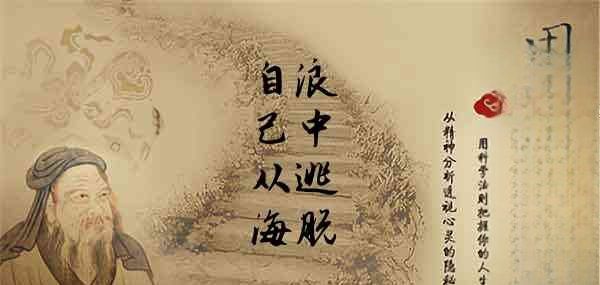 自己从海
浪中逃脱
从精神分析透视心灵的隐秘
用科学法则把握你的人生